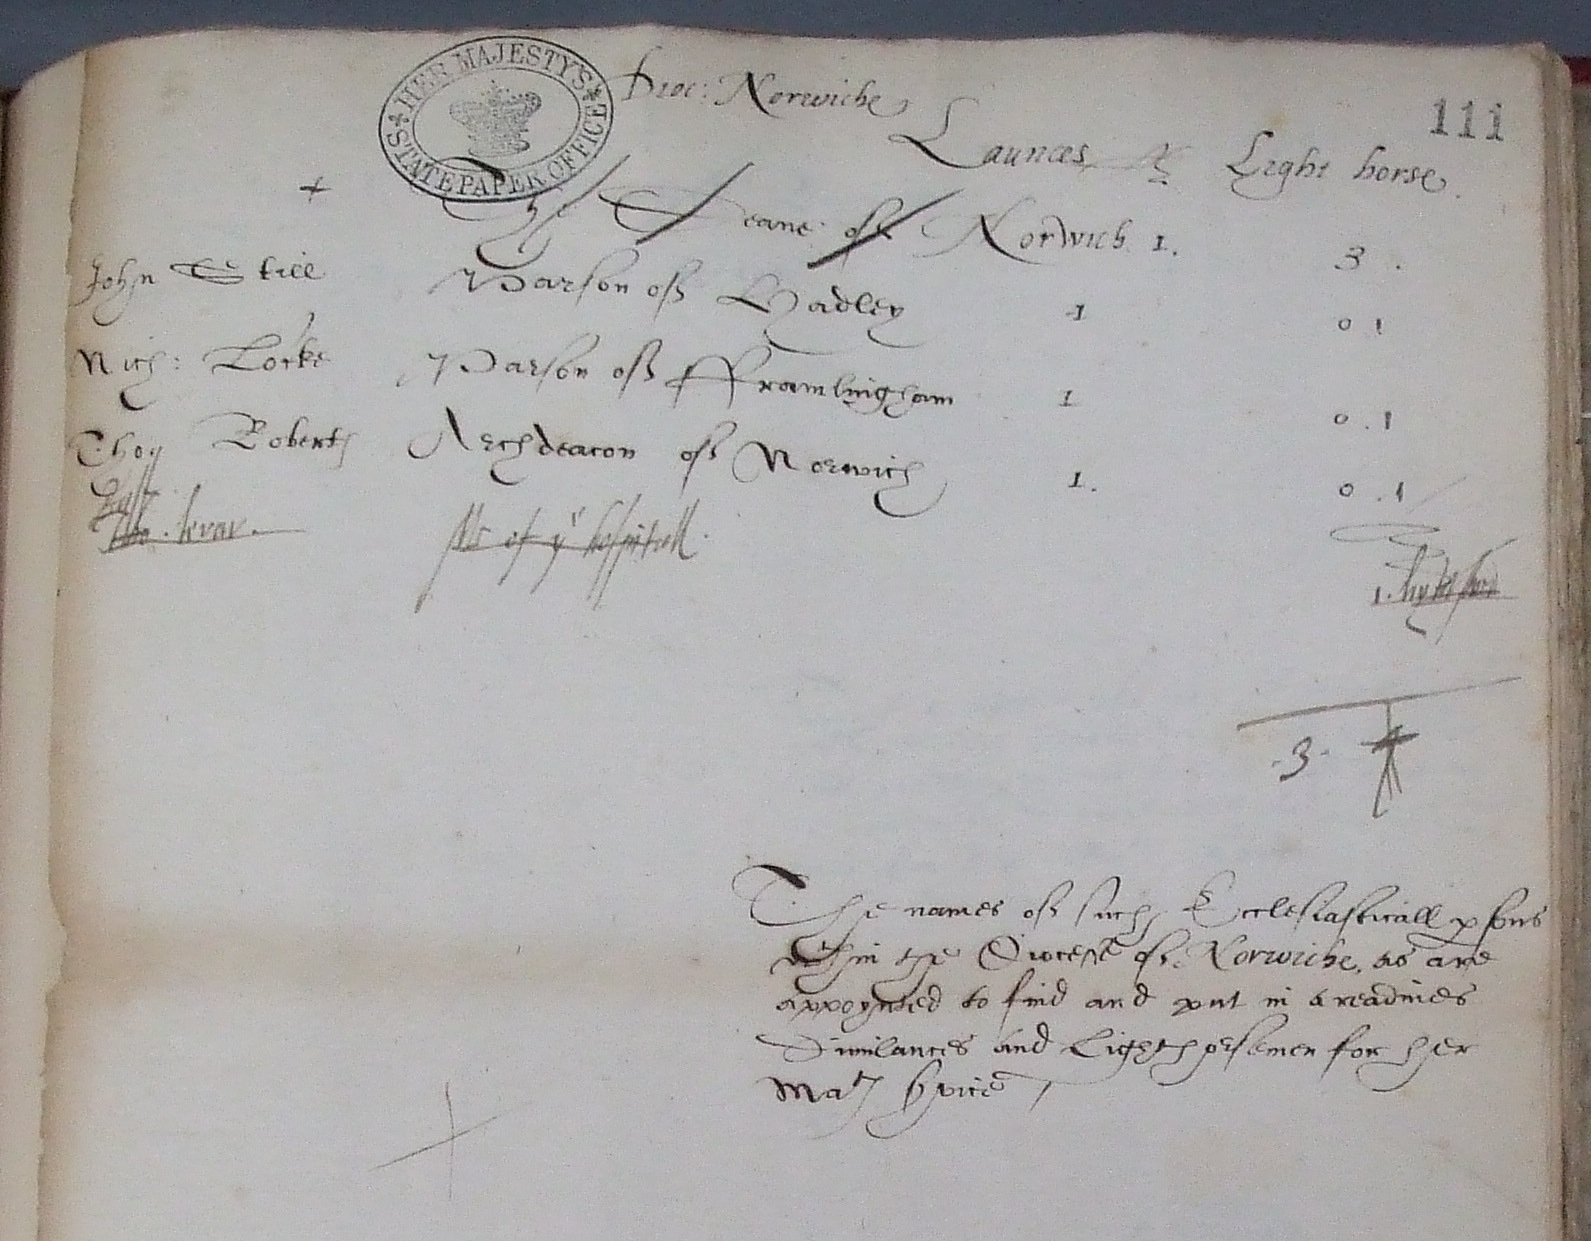 HER MAJESTY'S STATE PAPER OFFICE
Dioc: Norwiche
111
Launces Light horse
The Deane off Norwich 1. 3.
John Still Parson off Hadley 1 0 1
Nich: Locke Parson off Fframlingham 1 0.1
Thos Roberts Archdeacon off Norwich 1. 0.1
Mr of ye hospitall.
3
The names off such Ecclesiasticall psons
within the Diocesse off Norwiche, as are
appoynted to find and put in a readines
Dimilances and Lighthorsemen for her
Mats svice